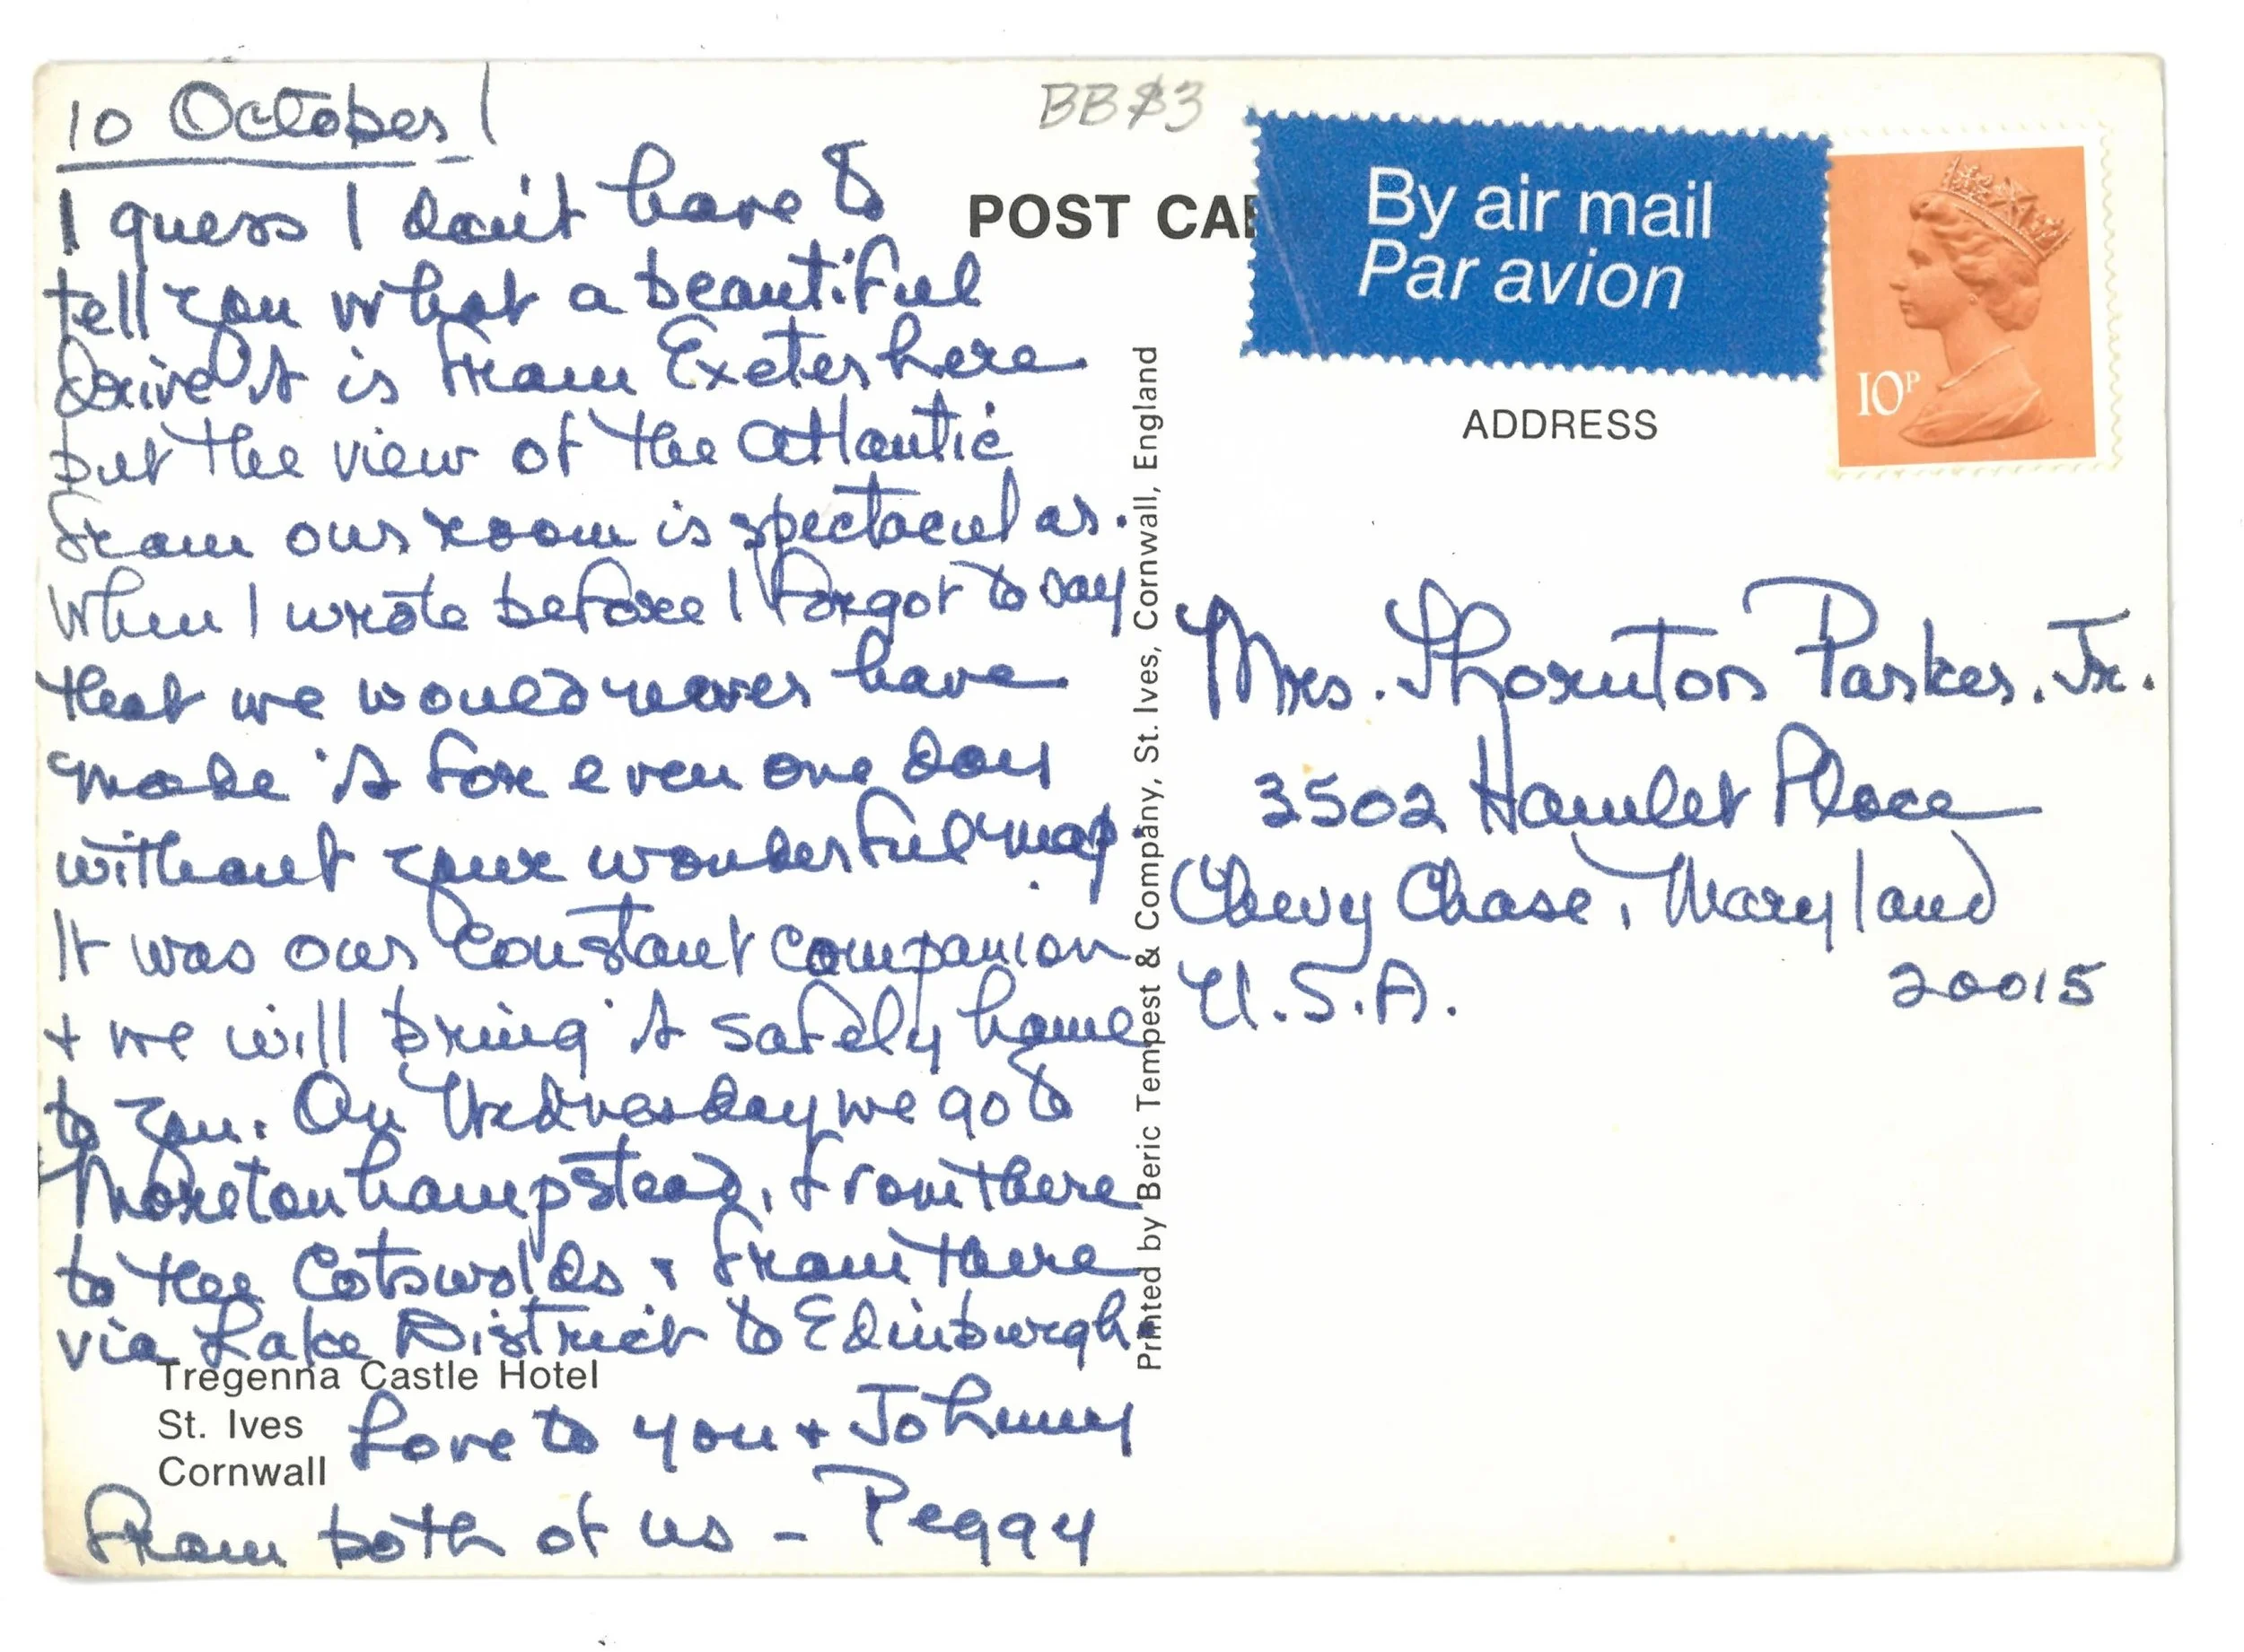 10 October
I guess I don't have to
tell you what a beautiful
drive it is from Exeter here
but the view of the Atlantic
from our room is spectacular.
When I wrote before I forgot to say
that we would never have
made it for even one day
without your wonderful map.
It was our constant companion
+ we will bring it safely home
to you. On Wednesday we go to
Moretonhampstead, + from there
to the Cotswolds + from there
via Lake District to Edinburgh.
Love to you + Johnny
from both of us - Peggy
Tregenna Castle Hotel
St. Ives
Cornwall
Printed by Beric Tempest & Company, St. Ives, Cornwall, England
BB $3
POST CA
By air mail
Par avion
10P
ADDRESS
Mrs. Thornton Parker, Jr.
3502 Hamlet Place
Chevy Chase, Maryland
U.S.A.
20015